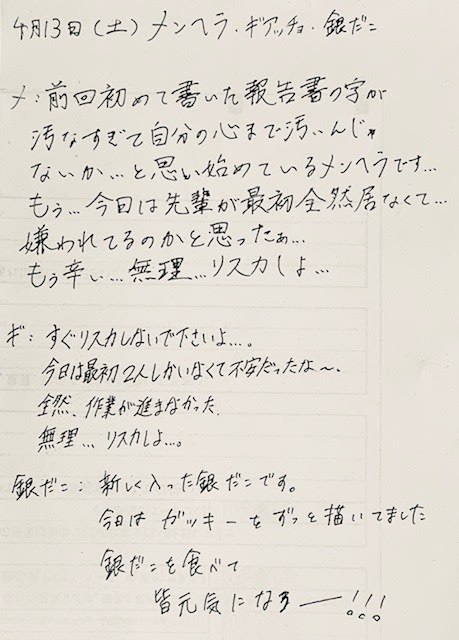 4月13日(土) メンヘラ・ギアッチョ・銀だこ
メ:前回初めて書いた報告書の字が
汚なすぎて自分の心まで汚いんじゃ
ないか…と思い始めているメンヘラです…
もう…今日は先輩が最初全然居なくて…
嫌われてるのかと思ったぁ…
もう辛い…無理…リスカしよ…
ギ:すぐリスカしないで下さいよ…。
今日は最初2人しかいなくて不安だったな〜。
全然、作業が進まなかった。
無理…リスカしよ…。
銀だこ:新しく入った銀だこです。
今日はガッキーをずっと描いてました
銀だこを食べて
皆元気になろー!!!